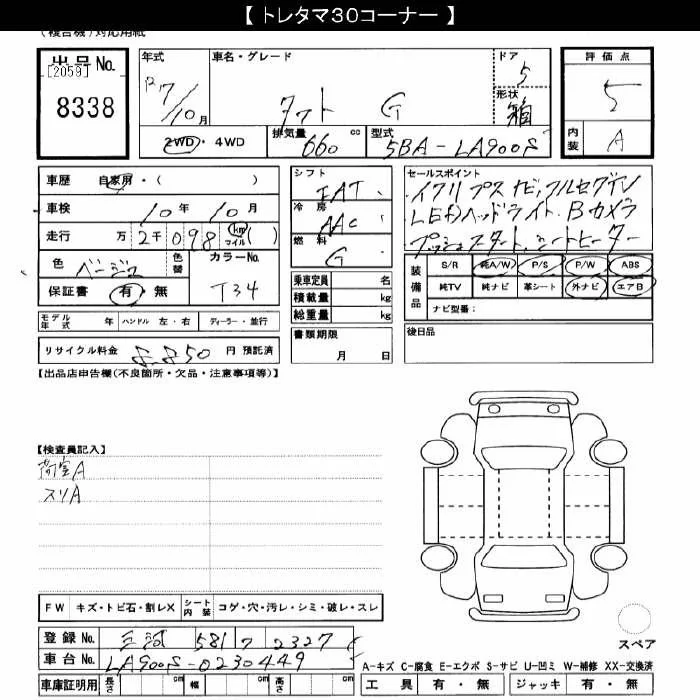 【 トレタマ30コーナー 】
(複合機)対応用紙
出品 No. [2059] 8338
年式 R 7/10月
車名・グレード タフト G
ドア 5
形状 箱
評価点 5
内装 A
2WD ・ 4WD
排気量 660 cc
型式 5BA-LA900S
車歴 自家用・( )
車検 10年 10月
走行 万 2千 098 km マイル ( )
色 ベージュ 色替 カラーNo. T34
保証書 有・無
モデル年式 年 ハンドル 左・右 ディーラー・並行
リサイクル料金 8,850 円 預託済
シフト IAT
冷房 AAC
燃料 G
乗車定員 名
積載量 kg
総重量 kg
書類期限 月 日
セールスポイント
イクリプスナビ,フルセグTV
LEDヘッドライト.Bカメラ
プッシュスタート,シートヒーター
装備品 S/R 純A/W P/S P/W ABS
純TV 純ナビ 革シート 外ナビ エアB
ナビ型番:
後日品
【出品店申告欄(不良箇所・欠品・注意事項等)】
【検査員記入】
荷室A
スリA
FW キズ・トビ石・割レX シート内装 コゲ・穴・汚レ・シミ・破レ・スレ
スペア
登録 No. 三河 581 ワ 2327
車台 No. LA900S-0230449
A-キズ C-腐食 E-エクボ S-サビ U-凹ミ W-補修 XX-交換済
車庫証明用 長さ cm 幅 cm 高さ cm
工具 有・無 ジャッキ 有・無